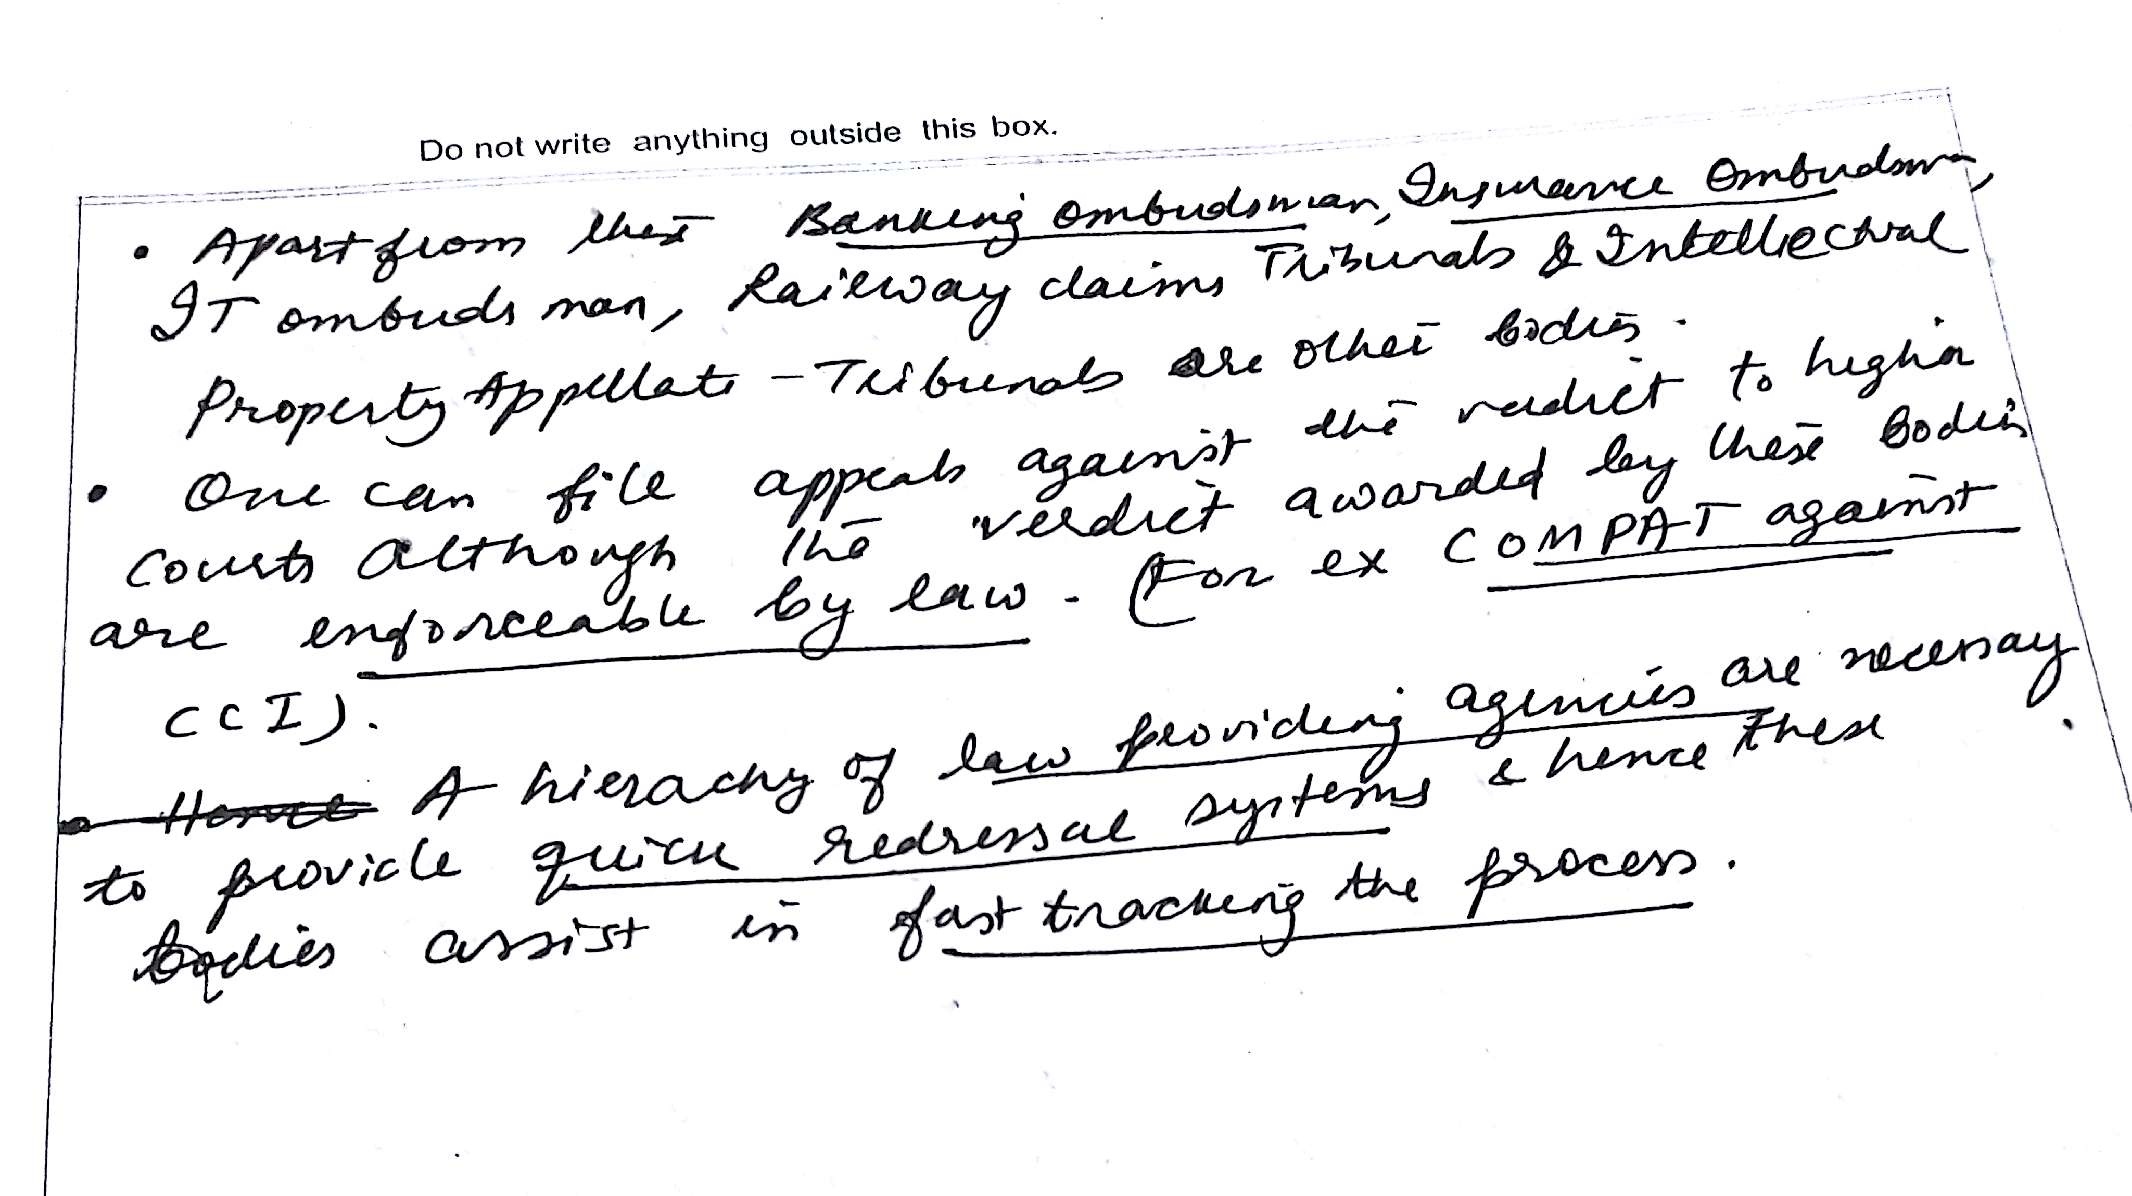 Do not write anything outside this box.
• Apart from these Banking Ombudsman, Insurance Ombudsman,
IT ombudsman, Railway claims Tribunals & Intellectual
Property Appellate - Tribunals are other bodies.
• One can file appeals against the verdict to higher
courts although the verdict awarded by these bodies
are enforceable by law. (For ex COMPAT against
CCI).
• Hence A hierachy of law providing agencies are necessay
to provide quick redressal systems & hence these
bodies assist in fast tracking the process.